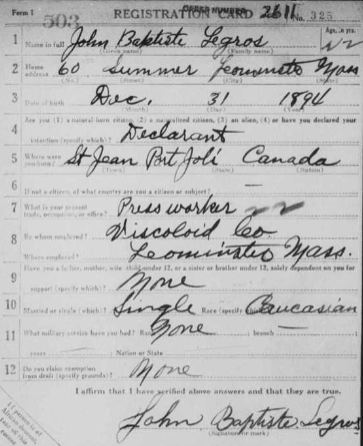 Form 1 503 REGISTRATION CARD ORDER NUMBER 2611 No. 325
1 Name in full John Baptiste Legros Age, in yrs. 22
(Given name) (Family name)
2 Home address 60 Summer Leominster Mass
(No.) (Street) (City) (State)
3 Date of birth Dec. 31 1894
(Month) (Day) (Year)
4 Are you (1) a natural-born citizen, (2) a naturalized citizen, (3) an alien, (4) or have you declared your
intention (specify which)? Declarant
5 Where were you born? St Jean Port Joli Canada
(Town) (State) (Nation)
6 If not a citizen, of what country are you a citizen or subject? —
7 What is your present trade, occupation, or office? Press worker 22
8 By whom employed? Viscoloid Co.
Where employed? Leominster Mass.
9 Have you a father, mother, wife, child under 12, or a sister or brother under 12, solely dependent on you for
support (specify which)? None
10 Married or single (which)? Single Race (specify which)? Caucasian
11 What military service have you had? Rank None branch —
years Nation or State
12 Do you claim exemption from draft (specify grounds)? None
I affirm that I have verified above answers and that they are true.
John Baptiste Legros
(Signature or mark)